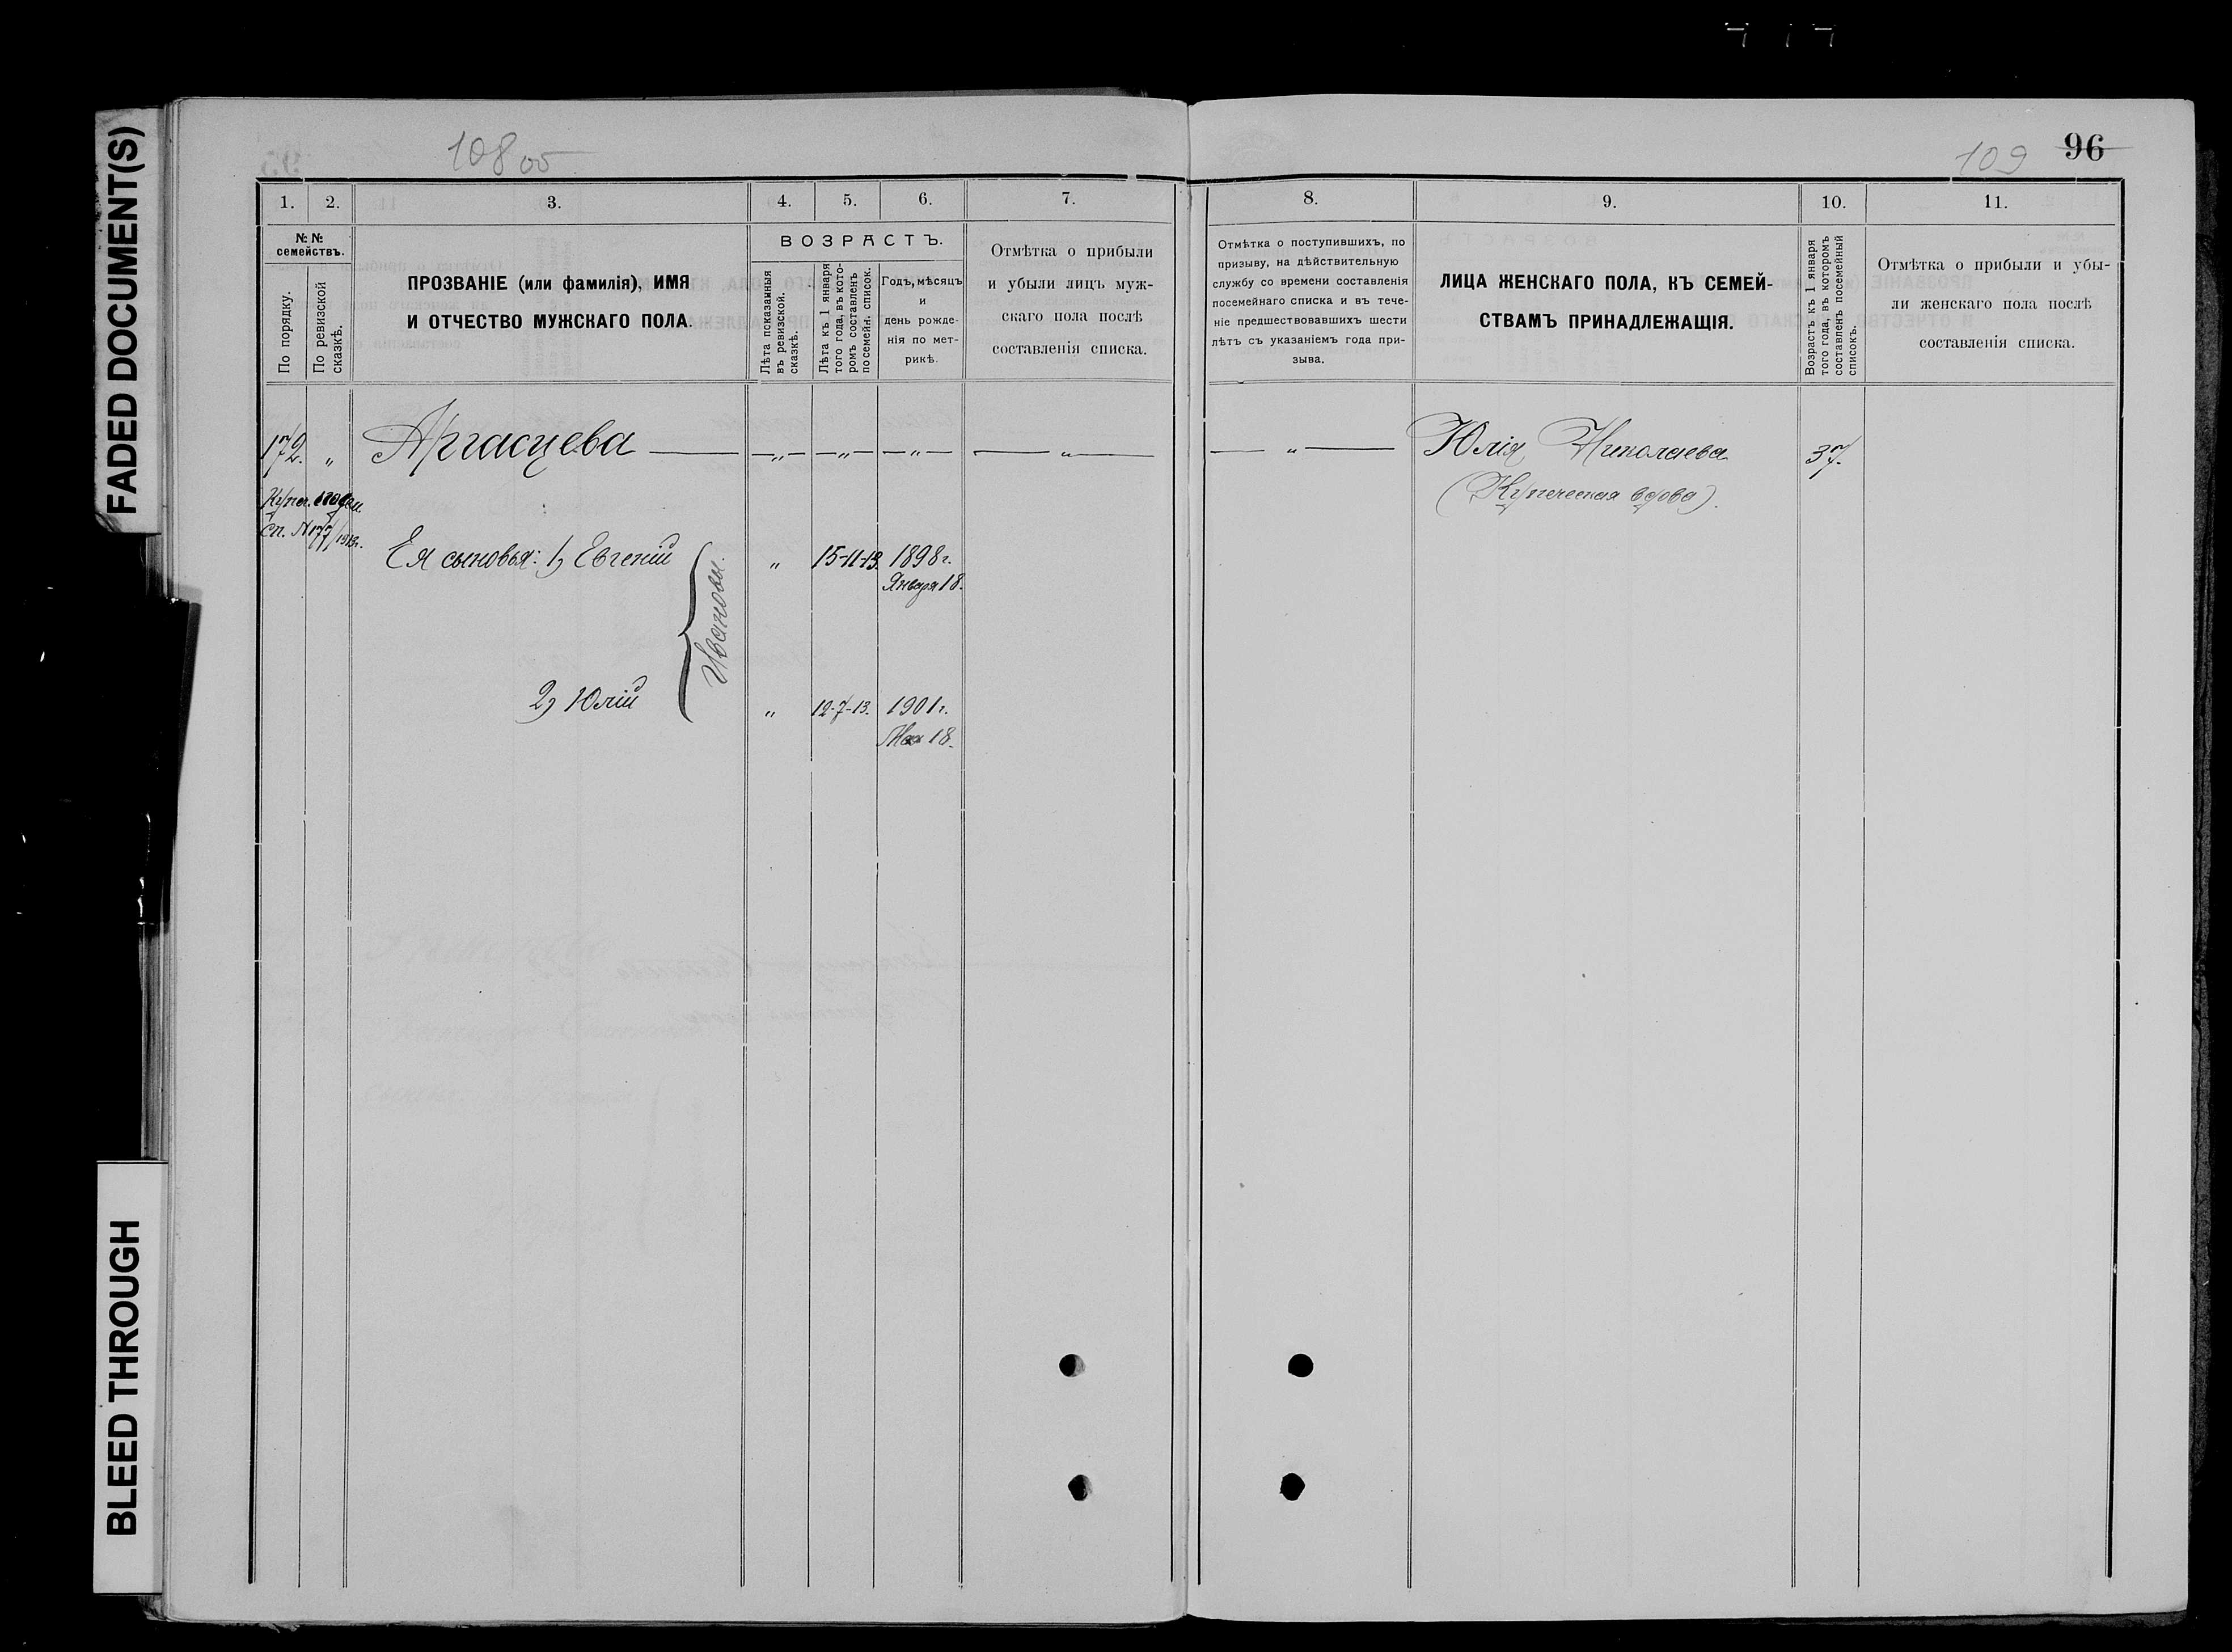 FADED DOCUMENT(S)
BLEED THROUGH
108 об
109 96
1. 2. 3. 4. 5. 6. 7. 8. 9. 10. 11.
№№ семействъ.
По порядку.
По ревизской сказкѣ.
ПРОЗВАНІЕ (или фамилія), ИМЯ
И ОТЧЕСТВО МУЖСКАГО ПОЛА.
ВОЗРАСТЪ.
Лѣта показанныя
въ ревизской.
сказкѣ.
Лѣта къ 1 января
того года, въ кото-
ромъ составленъ
посемейн. список.
Годъ, мѣсяцъ
и
день рожде-
нія по мет-
рикѣ.
Отмѣтка о прибыли
и убыли лицъ муж-
скаго пола послѣ
составленія списка.
Отмѣтка о поступившихъ, по
призыву, на дѣйствительную
службу со времени составленія
посемейнаго списка и въ тече-
ніе предшествовавшихъ шести
лѣтъ съ указаніемъ года при-
зыва.
ЛИЦА ЖЕНСКАГО ПОЛА, КЪ СЕМЕЙ-
СТВАМЪ ПРИНАДЛЕЖАЩІЯ.
Возрастъ къ 1 января
того года, въ которомъ
составленъ посемейный
списокъ.
Отмѣтка о прибыли и убы-
ли женскаго пола послѣ
составленія списка.
172. " — " — — " — — " — — " — — " — Юлія Николаева 37.
(Купеческая вдова).
Купеч.
Сп. № 177/1913г.
Ея сыновья: 1, Евгеній " 15-11-13. 1898 г.
Января 18.
Ивановы.
2, Юлій " 12-7-13. 1901 г.
Мая 18.